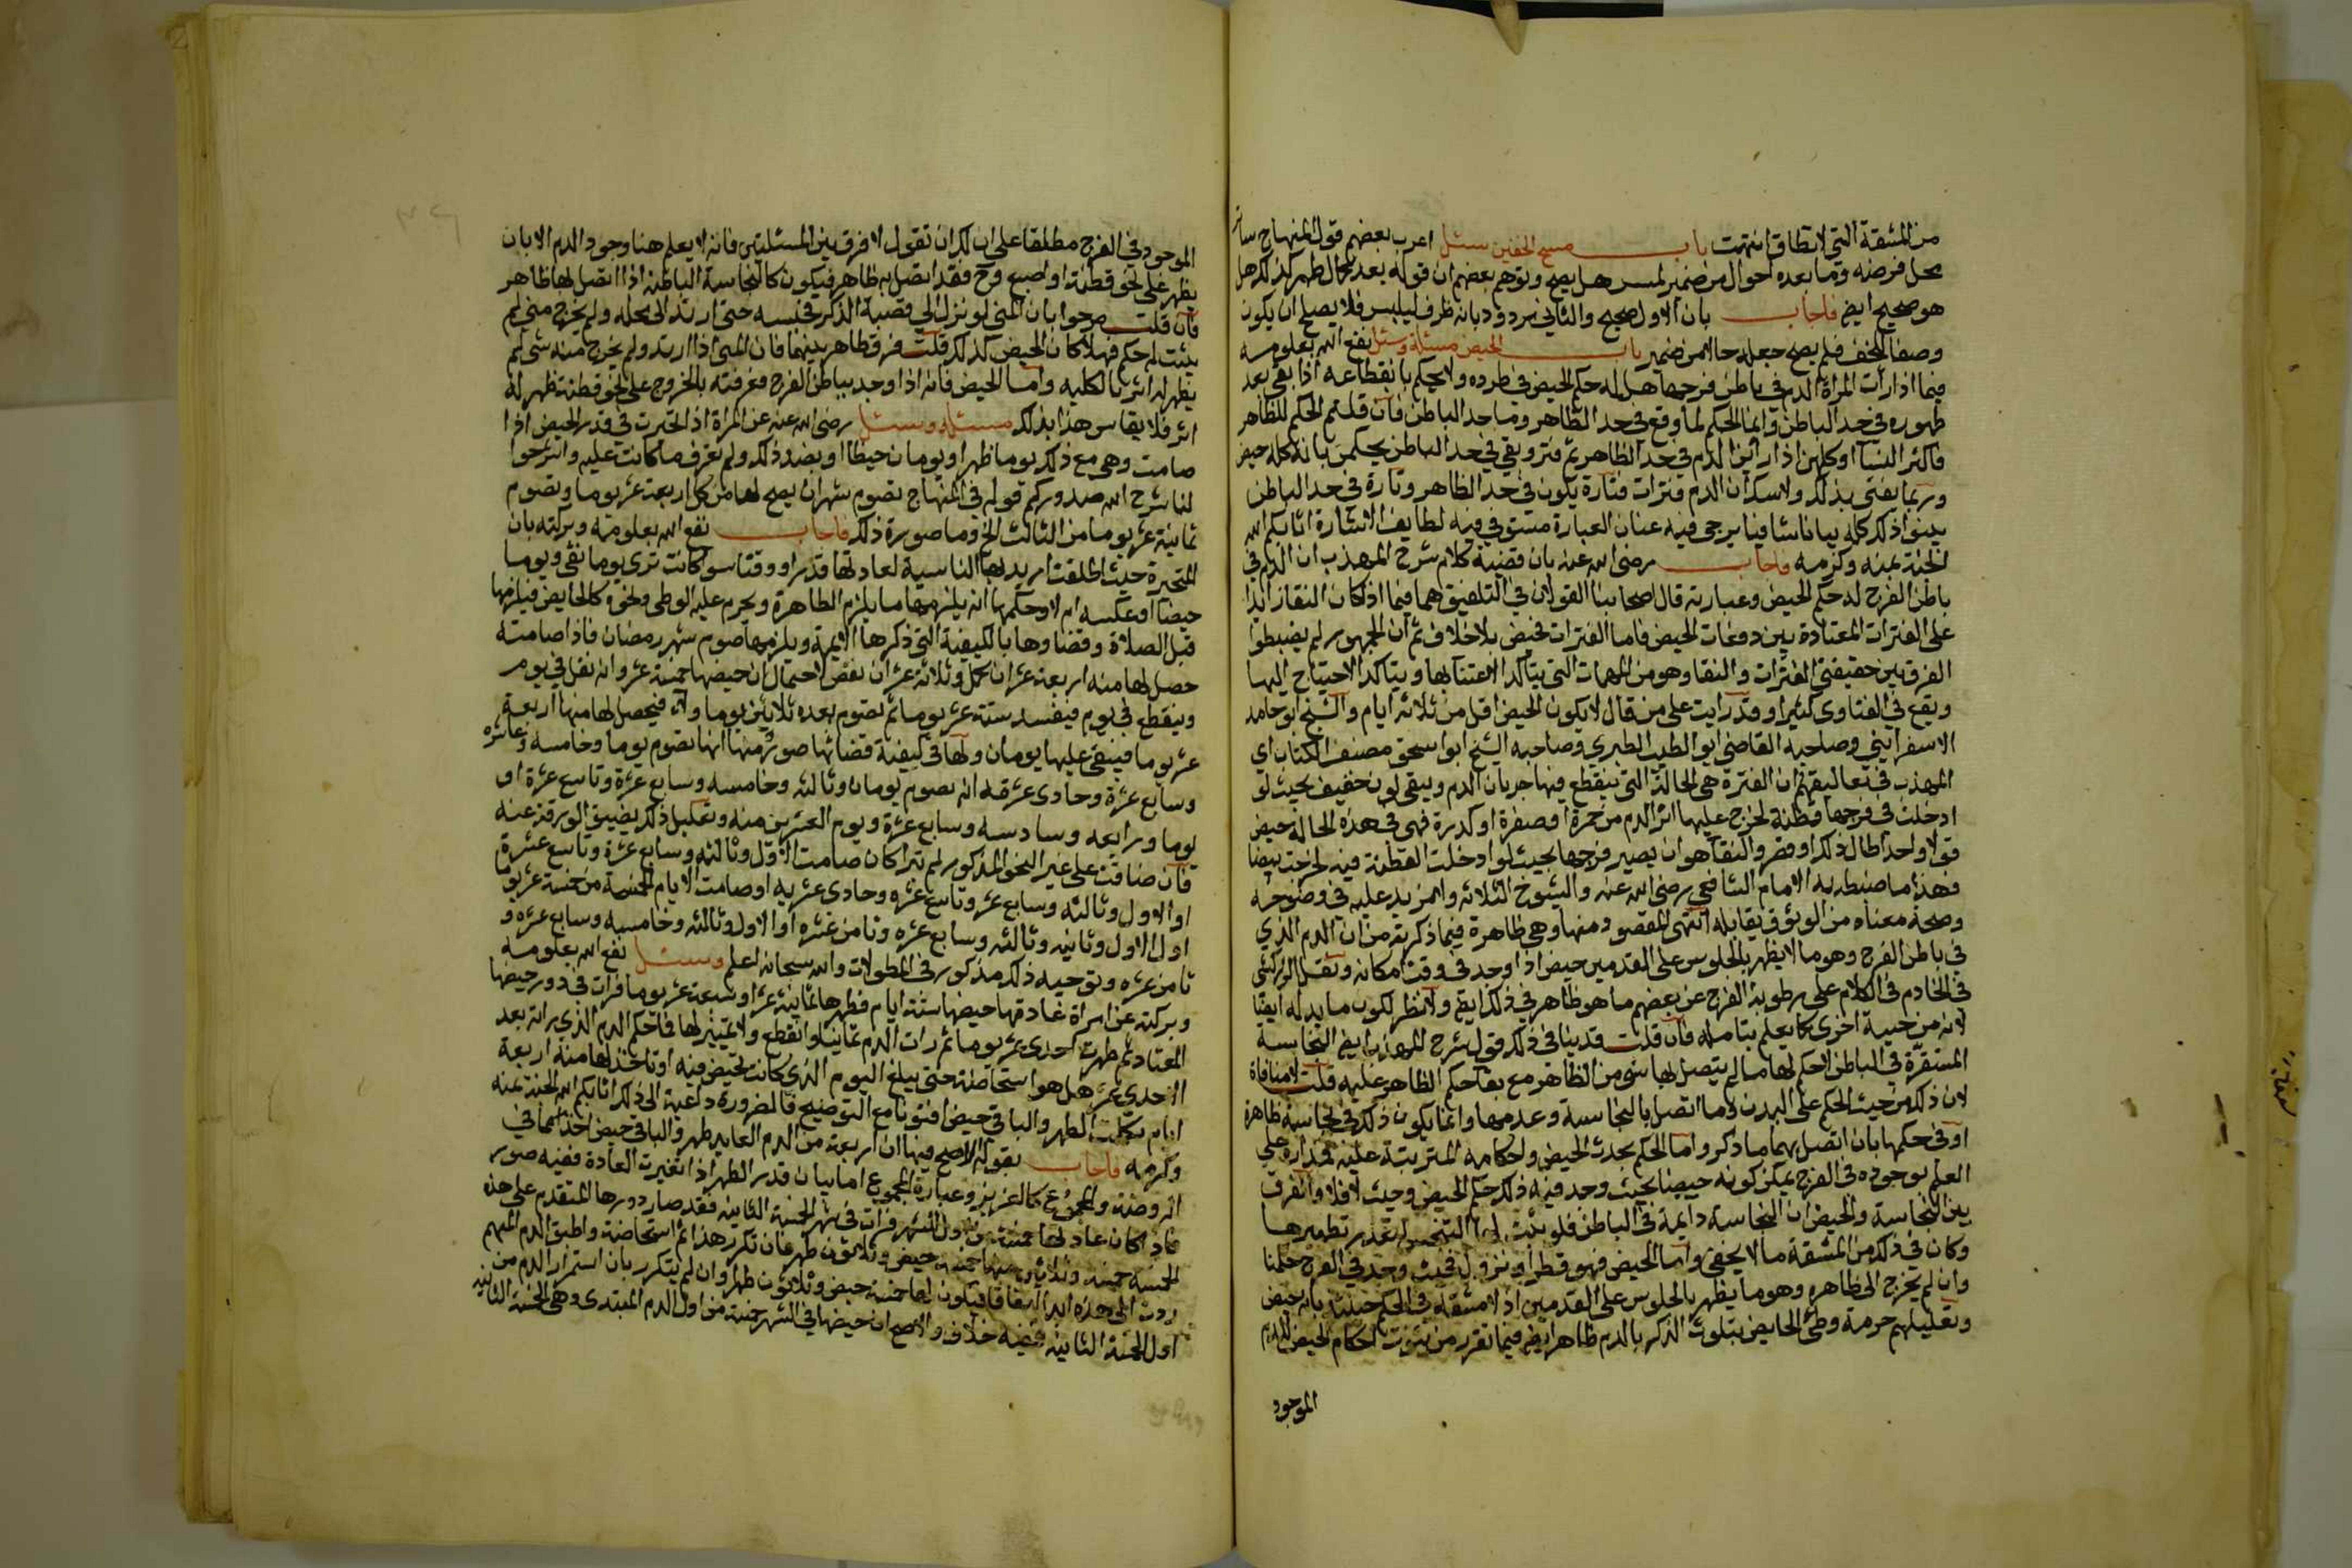 من المشقة التي لا تطاق انتهت باب مسح الخفين سئل اعرب بعضهم قول المنهاج ساتر
محل فرضه وما بعده احوال من ضمير لمس هل يصح وتوهم بعضهم ان قوله بعد كمال طهر كذلك هل
هو صحيح ايضا فاجاب بان الاول صحيح والثاني مردود بانه ظرف ليلبس فلا يصلح ان يكون
وصفا للخف فلم يصح جعله حالا من ضمير باب الحيض مسئلة وسئل نفع الله بعلومه
فيما اذا رأت المراة الدم في باطن فرجها هل له حكم الحيض في طرده ولا يحكم بانقطاعه اذا بقي بعد
ظهوره في حد الباطن وانما الحكم لما وقع في حد الظاهر وما حد الباطن فان قلتم الحكم للظاهر
فاكثر النسآ او كلهن اذا راين الدم في حد الظاهر ثم فتر وبقي في حد الباطن يحكمن بانه كله حيض
وربما يفتى بذلك ولا شك ان الدم فترات فتارة يكون في حد الظاهر وتارة في حد الباطن
بينوا ذلك كله بيانا شافيا يرجى فيه عنان العبارة مستوفى فيه لطايف الاشارة اثابكم الله
الجنة بمنه وكرمه فاجاب رضي الله عنه بان قضية كلام شرح المهذب ان الدم في
باطن الفرج له حكم الحيض وعبارته قال اصحابنا القولان في التلفيق هما فيما اذا كان النقا زايدا
على الفترات المعتادة بين دفعات الحيض فاما الفترات فحيض بلا خلاف ثم ان الجمهور لم يضبطوا
الفرق بين حقيقتي الفترات والنقا وهو من المهمات التي يتاكد الاعتنا بها ويتاكد الاحتياج اليها
ويقع في الفتاوى كثيرا وقد رايت على من قال لا يكون الحيض اقل من ثلاثه ايام والشيخ ابو حامد
الاسفرايني وصاحبه القاضي ابو الطيب الطبري وصاحبه الشيخ ابو اسحق مصنف الكتاب اي
المهذب في تعاليقهم ان الفترة هي الحالة التي ينقطع فيها جريان الدم ويبقى لون خفيف بحيث لو
ادخلت في فرجها قطنة لخرج عليها اثر الدم من حمرة او صفرة او كدرة فهي في هذه الحالة حيض
قولا واحدا طال ذلك او قصر والنقآ هو ان يصير فرجها بحيث لو ادخلت القطنة فيه لخرجت بيضا
فهذا ما ضبطه به الامام الشافعي رضي الله عنه والشيوخ الثلاثه ولا مزيد عليه في وضوحه
وصحة معناه من الوثوق بقايله انتهى المقصود منها وهي ظاهرة فيما ذكرته من ان الدم الذي
في باطن الفرج وهو ما لا يظهر بالجلوس على القدمين حيض اذا وجد في وقت امكانه ونقل الزركشي
في الخادم في الكلام على رطوبة الفرج عن بعضهم ما هو ظاهر في ذلك ايضا ولا نظر لكون ما يدله ايضا
لانه من حيثية اخرى كما يعلم بتامله فان قلت قد ينافى ذلك قول شرح المهذب ايضا النجاسة
المستقرة في الباطن لا حكم لها ما لم يتصل بها شي من الظاهر مع بقا حكم الظاهر عليه قلت لا منافاة
لان ذلك من حيث الحكم على البدن وما اتصل بالنجاسة وعدمها وانما يكون ذلك في نجاسة ظاهرة
او في حكمها بان اتصل بها ما ذكر واما الحكم بحدث الحيض واحكامه المترتبة عليه فمداره على
العلم بوجوده في الفرج يمكن كونه حيضا بحيث وجد فيه ذلك حكم الحيض وحيث لا فلا والفرق
بين النجاسة والحيض ان النجاسة دايمة في الباطن فلو يثبت لها التنجيس لتعذر تطهيرها
وكان في ذلك من المشقة ما لا يخفى واما الحيض فهو قطرا ونزول فحيث وجد في الفرج حكمنا
وان لم يخرج الى ظاهره وهو ما يظهر بالجلوس على القدمين اذ لا مشقة في الحكم حينئذ بانه حيض
وتعليلهم حرمة وطئ الحايض بتلوث الذكر بالدم ظاهر ايضا فيما تقرر من ثبوت احكام الحيض للدم
الموجود
الموجود في الفرج مطلقا على ان لك ان تقول لا فرق بين المسئلتين فانه لا يعلم هنا وجود الدم الا بان
يظهر على نحو قطنة او اصبع فرج فقد اتصل به ظاهر فيكون كالنجاسة الباطنة اذا اتصل بها ظاهر
فان قلت صرحوا بان المني لو نزل الى قصبة الذكر فحبسه حتى ارتد الى محله ولم يخرج مني لم
يثبت له حكم فهلا كان الحيض كذلك قلت فرق ظاهر بينهما فان المني اذا ارتد ولم يخرج منه شي لم
يظهر له اثر بالكليه واما الحيض فانه اذا وجد بباطن الفرج فعرفته بالخروج على نحو قطنة ظهر له
اثر فلا يقاس هذا بذلك مسئلة وسئل رضي الله عنه عن المراة اذا تحيرت في قدر الحيض اذا
صامت وهي مع ذلك يوما طهرا ويومان حيضا او بضد ذلك ولم تعرف ما كانت عليه واشرحوا
لنا شرح الله صدوركم قوله في المنهاج تصوم شهران يصح لها من كل اربعة عشر يوما وتصوم
ثمانية عشر يوما من الثالث الخ وما صورة ذلك فاجاب نفع الله بعلومه وبركته بان
المتحيرة حيث اطلقت اريد بها الناسية لعادتها قدرا ووقتا سوا كانت ترى يوما نقى ويوما
حيضا او عكسه ام لا وحكمها انه يلزمها ما يلزم الطاهرة ويحرم عليه الوطى ونحوه كالحايض فيلزمها
قبل الصلاة وقضاوها بالكيفية التي ذكرها الايمة ويلزمها صوم شهر رمضان فاذا صامته
حصل لها منه اربعة عشر ان كمل وثلاثة عشر ان نقص لاحتمال ان حيضها خمسة عشر وانه نقل في يوم
وينقطع في يوم فيفسد ستة عشر يوما ثم تصوم بعده ثلاثين يوما ولاء فيحصل لها منها اربعة
عشر يوما فيبقى عليها يومان ولها في كيفية قضائها صور منها انها تصوم يوما وخامسه وعاشره
وسابع عشرة وحادى عشرفه انه تصوم يومان وثالثه وخامسه وسابع عشرة وتاسع عشرة او
يوما ورابعه وسادسه وسابع عشرة ويوم العشرين منه وتعليل ذلك يضيق الورقة عنه
فان ضاقت على غير النحو المذكور لم تبرا كان صامت الاول وثالثه وسابع عشرة وتاسع عشرة
او الاول وثالثه وسابع عشر وتاسع عشره وحادى عشريه او صامت الايام الخمسة من خمسة عشر يوما
اول الاول وثانيه وثالثه وسابع عشره وثامن عشره او الاول وثالثه وخامسه وسابع عشره و
ثامن عشره وتوجيه ذلك مذكور في المطولات والله سبحانه اعلم وسئل نفع الله بعلومه
وبركته عن امراة عادتها حيضها ستة ايام فطهرها ثمانية عشر او سبعة عشر يوما فرات في دور حيضها
المعتاد ثم طهرت احدى عشر يوما ثم رات الدم ثمانيا وانقطع ولا تمييز لها فما حكم الدم الذي راته بعد
الاحدى عشر هل هو استحاضة حتى يبلغ اليوم الذي كانت تحيض فيه او تاخذ لها منه اربعة
ايام تكملة الطهر والباقي حيض افتونا مع التوضيح فالضرورة داعية الى ذلك اثابكم الله الجنة بمنه
وكرمه فاجاب بقوله الاصح فيها ان اربعة من الدم العايد طهر والباقي حيض اخذا مما في
الروضة والمجموع كالعزيز وعبارة المجموع اما بيان قدر الطهر اذا تغيرت العادة ففيه صور
فاذا كان عادتها خمسة من اول الشهر فرات في شهر الخمسة الثانية فقد صار دورها المتقدم على هذه
الخمسة خمسة وثلاثين منها خمسة حيض وثلاثون طهر فان تكرر هذا ثم استحاضة واطبق الدم المبهم
ردت الى هذه ابدا اتفاقا فيكون لها خمسة حيض وثلاثون طهر وان لم يتكرر بان استمر الدم من
اول الخمسة الثانية ففيه خلاف والاصح ان حيضها في الشهر خمسة من اول الدم المبتدى وهي الخمسة الثانية